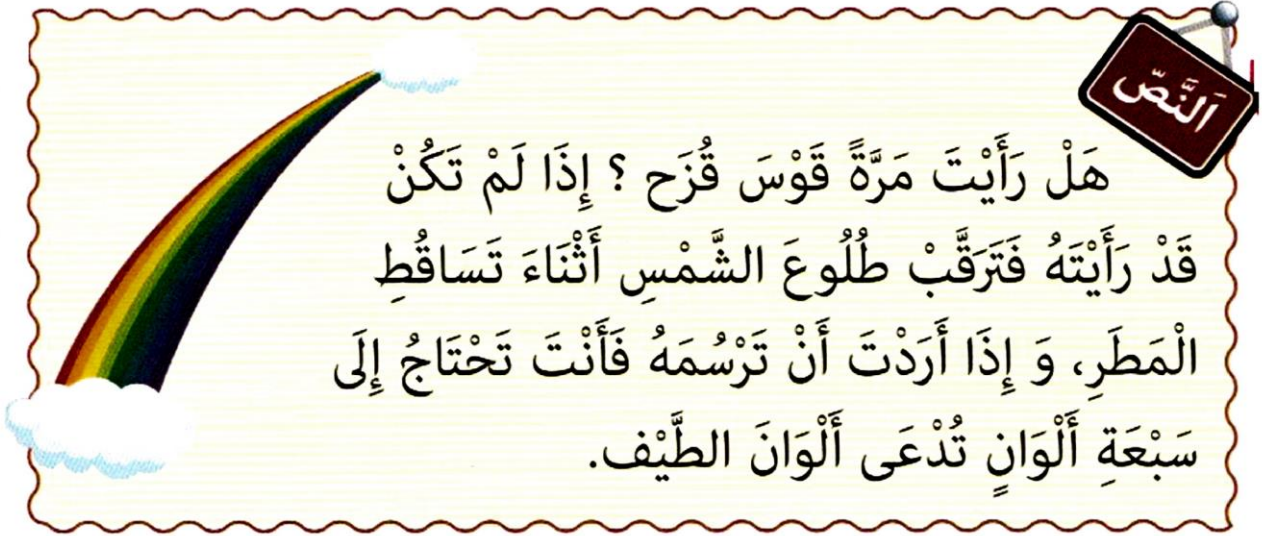 اَلنَّصّ
هَلْ رَأَيْتَ مَرَّةً قَوْسَ قُزَح ؟ إِذَا لَمْ تَكُنْ
قَدْ رَأَيْتَهُ فَتَرَقَّبْ طُلُوعَ الشَّمْسِ أَثْنَاءَ تَسَاقُطِ
الْمَطَرِ، وَ إِذَا أَرَدْتَ أَنْ تَرْسُمَهُ فَأَنْتَ تَحْتَاجُ إِلَى
سَبْعَةِ أَلْوَانٍ تُدْعَى أَلْوَانَ الطَّيْف.